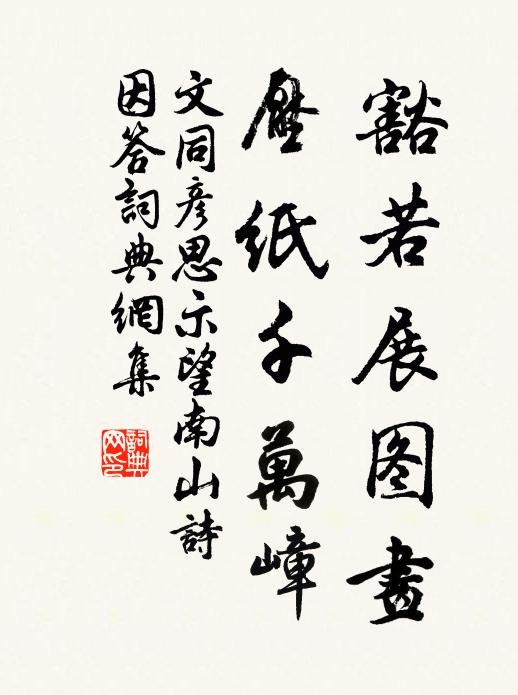 豁若展图畫
壓紙千萬嶂
文同彥思示望南山詩
因答詞典網集
詞典
网印